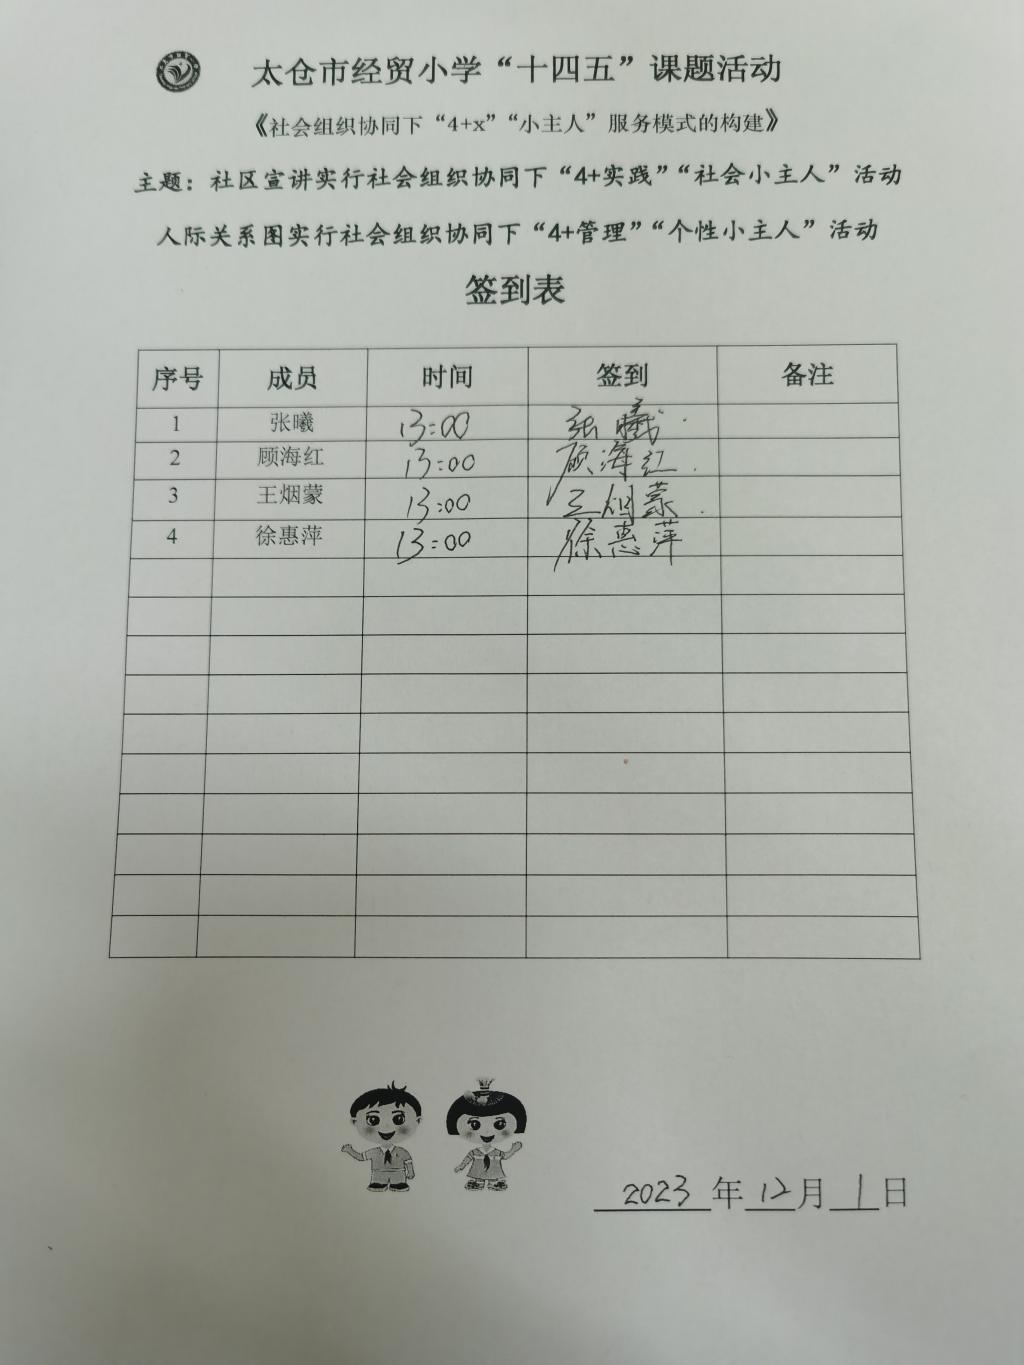 太仓市经贸小学“十四五”课题活动
《社会组织协同下“4+x”“小主人”服务模式的构建》
主题：社区宣讲实行社会组织协同下“4+实践”“社会小主人”活动
人际关系图实行社会组织协同下“4+管理”“个性小主人”活动
签到表
序号 成员 时间 签到 备注
1 张曦 13:00 张曦
2 顾海红 13:00 顾海红
3 王烟蒙 13:00 王烟蒙
4 徐惠萍 13:00 徐惠萍
2023年12月1日